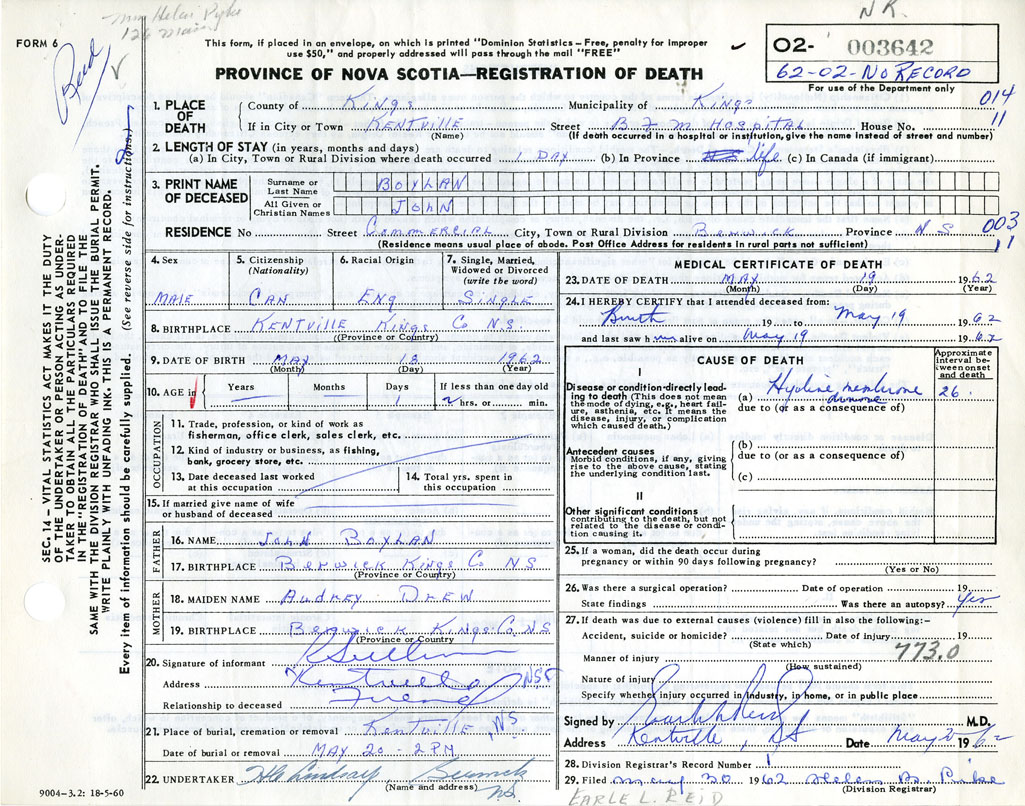 Mrs Helen Pyke
126 Main
N.R.
FORM 6
Reid
This form, if placed in an envelope, on which is printed "Dominion Statistics – Free, penalty for improper
use $50," and properly addressed will pass through the mail "FREE"
PROVINCE OF NOVA SCOTIA—REGISTRATION OF DEATH
02- 003642
62-02-No Record
For use of the Department only
SEC. 14 – VITAL STATISTICS ACT MAKES IT THE DUTY
OF THE UNDERTAKER OR PERSON ACTING AS UNDER-
TAKER TO OBTAIN ALL THE PARTICULARS REQUIRED
IN THE "REGISTRATION OF DEATH" AND TO FILE THE
SAME WITH THE DIVISION REGISTRAR WHO SHALL ISSUE THE BURIAL PERMIT.
WRITE PLAINLY WITH UNFADING INK. THIS IS A PERMANENT RECORD.
Every item of information should be carefully supplied. (See reverse side for instructions.)
1. PLACE OF DEATH
County of Kings Municipality of Kings 014
If in City or Town Kentville Street B.F.M Hospital House No. 11
(Name) (If death occurred in a hospital or institution, give the name instead of street and number)
2. LENGTH OF STAY (in years, months and days)
(a) In City, Town or Rural Division where death occurred 1 Day (b) In Province life (c) In Canada (if immigrant)
3. PRINT NAME OF DECEASED
Surname or Last Name BOXLAN
All Given or Christian Names JOHN
RESIDENCE No Street Commercial City, Town or Rural Division Berwick Province N S 003
(Residence means usual place of abode. Post Office Address for residents in rural parts not sufficient) 11
4. Sex
Male
5. Citizenship (Nationality)
Can
6. Racial Origin
Eng
7. Single, Married, Widowed or Divorced (write the word)
Single
8. BIRTHPLACE Kentville Kings Co N.S.
(Province or Country)
9. DATE OF BIRTH May 18 1962
(Month) (Day) (Year)
10. AGE in Years Months Days 1 If less than one day old 2 hrs. or min.
OCCUPATION
11. Trade, profession, or kind of work as
fisherman, office clerk, sales clerk, etc.
12. Kind of industry or business, as fishing,
bank, grocery store, etc.
13. Date deceased last worked
at this occupation
14. Total yrs. spent in
this occupation
15. If married give name of wife
or husband of deceased
FATHER
16. NAME John Boxlan
17. BIRTHPLACE Berwick Kings Co NS
(Province or Country)
MOTHER
18. MAIDEN NAME Audrey Drew
19. BIRTHPLACE Berwick Kings Co. NS
(Province or Country)
20. Signature of informant
Address Kentville NS
Relationship to deceased Friend
21. Place of burial, cremation or removal Kentville, NS
Date of burial or removal May 20 - 2 PM
22. UNDERTAKER Lindsay Berwick N.S.
(Name and address)
9004-3.2: 18-5-60
MEDICAL CERTIFICATE OF DEATH
23. DATE OF DEATH May 19 1962
(Month) (Day) (Year)
24. I HEREBY CERTIFY that I attended deceased from:
Birth 19 to May 19 1962
and last saw him alive on May 19 1962
CAUSE OF DEATH
Approximate interval between onset and death
I
Disease or condition-directly lead-
ing to death (This does not mean
the mode of dying, e.g., heart fail-
ure, asthenia, etc. It means the
disease, injury, or complication
which caused death.)
(a) Hyaline membrane disease 26
due to (or as a consequence of)
(b)
due to (or as a consequence of)
(c)
Antecedent causes
Morbid conditions, if any, giving
rise to the above cause, stating
the underlying condition last.
II
Other significant conditions
contributing to the death, but not
related to the disease or condi-
tion causing it.
25. If a woman, did the death occur during
pregnancy or within 90 days following pregnancy?
(Yes or No)
26. Was there a surgical operation? Date of operation 19
State findings Was there an autopsy? Yes
27. If death was due to external causes (violence) fill in also the following:-
Accident, suicide or homicide? Date of injury 19
(State which)
Manner of injury 773.0
(How sustained)
Nature of injury
Specify whether injury occurred in Industry, in home, or in public place
Signed by M.D.
Address Kentville, NS Date May 1962
28. Division Registrar's Record Number 1
29. Filed May 20 1962 Helen B. Pyke
(Division Registrar)
EARLE L. REID